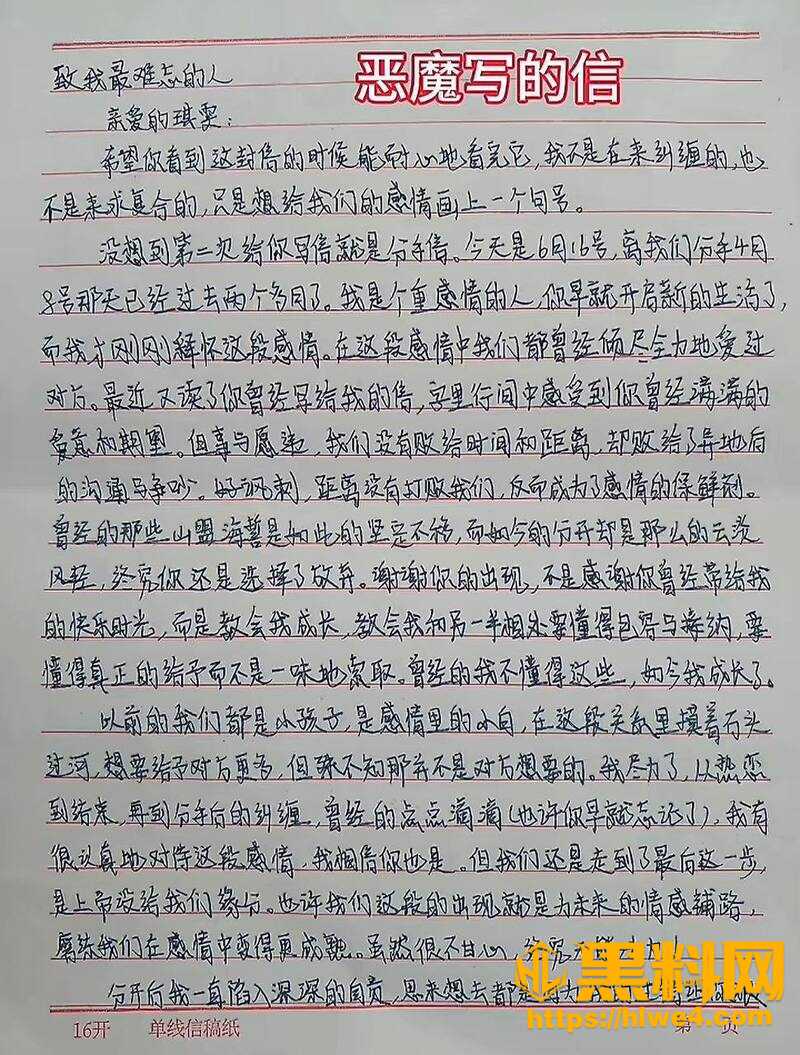 恶魔写的信
致我最难忘的人
亲爱的琪雯：
希望你看到这封信的时候能耐心地看完它，我不是在来纠缠的，也
不是来求复合的，只是想给我们的感情画上一个句号。
没想到第二次给你写信就是分手信。今天是6月16号，离我们分手4月
8号那天已经过去两个多月了。我是个重感情的人，你早就开启新的生活了，
而我才刚刚释怀这段感情。在这段感情中我们都曾经倾尽全力地爱过
对方。最近又读了你曾经写给我的信，字里行间中感受到你曾经满满的
爱意和期望。但事与愿违，我们没有败给时间和距离，却败给了异地后
的沟通与争吵。好讽刺，距离没有打败我们，反而成为了感情的保鲜剂。
曾经的那些山盟海誓是如此的坚定不移，而如今的分开却是那么的云淡
风轻，终究你还是选择了放弃。谢谢你的出现，不是感谢你曾经带给我
的快乐时光，而是教会我成长，教会我和另一半相处要懂得包容与接纳，要
懂得真正的给予而不是一味地索取。曾经的我不懂得这些，如今我成长了。
以前的我们都是小孩子，是感情里的小白，在这段关系里摸着石头
过河，想要给予对方更多，但殊不知那并不是对方想要的。我尽力了，从热恋
到结束，再到分手后的纠缠，曾经的点点滴滴（也许你早就忘记了），我有
很认真地对待这段感情，我相信你也是。但我们还是走到了最后这一步，
是上帝没给我们缘分。也许我们这段的出现就是为未来的情感铺路，
磨练我们在感情中变得更成熟。虽然很不甘心，终究
分开后我一直陷入深深的自责，思来想去都是
黑料网
https://hlwe4.com
16开 单线信稿纸 第 页